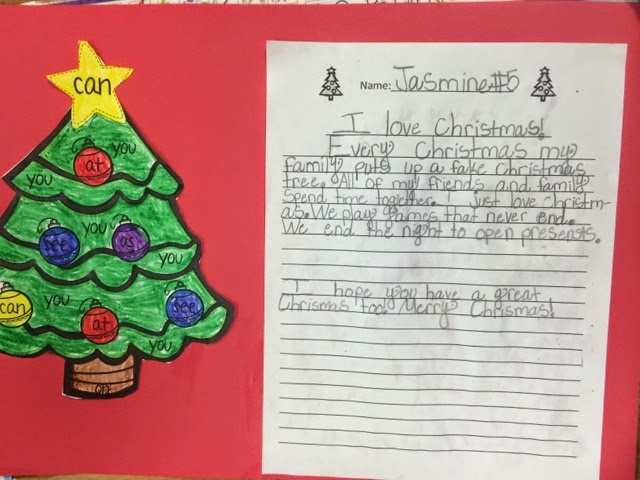 can
you
at
you
you
see
as
you
you
can
at
see
you
on
Name: Jasmine #5
I love Christmas!
Every Christmas my
family puts up a fake Christmas
tree. All of my friends and family
spend time together. I just love Christm-
as. We play games that never end.
We end the night to open presensts.
I hope you have a great
Chrismas too. Merry Chrismas!